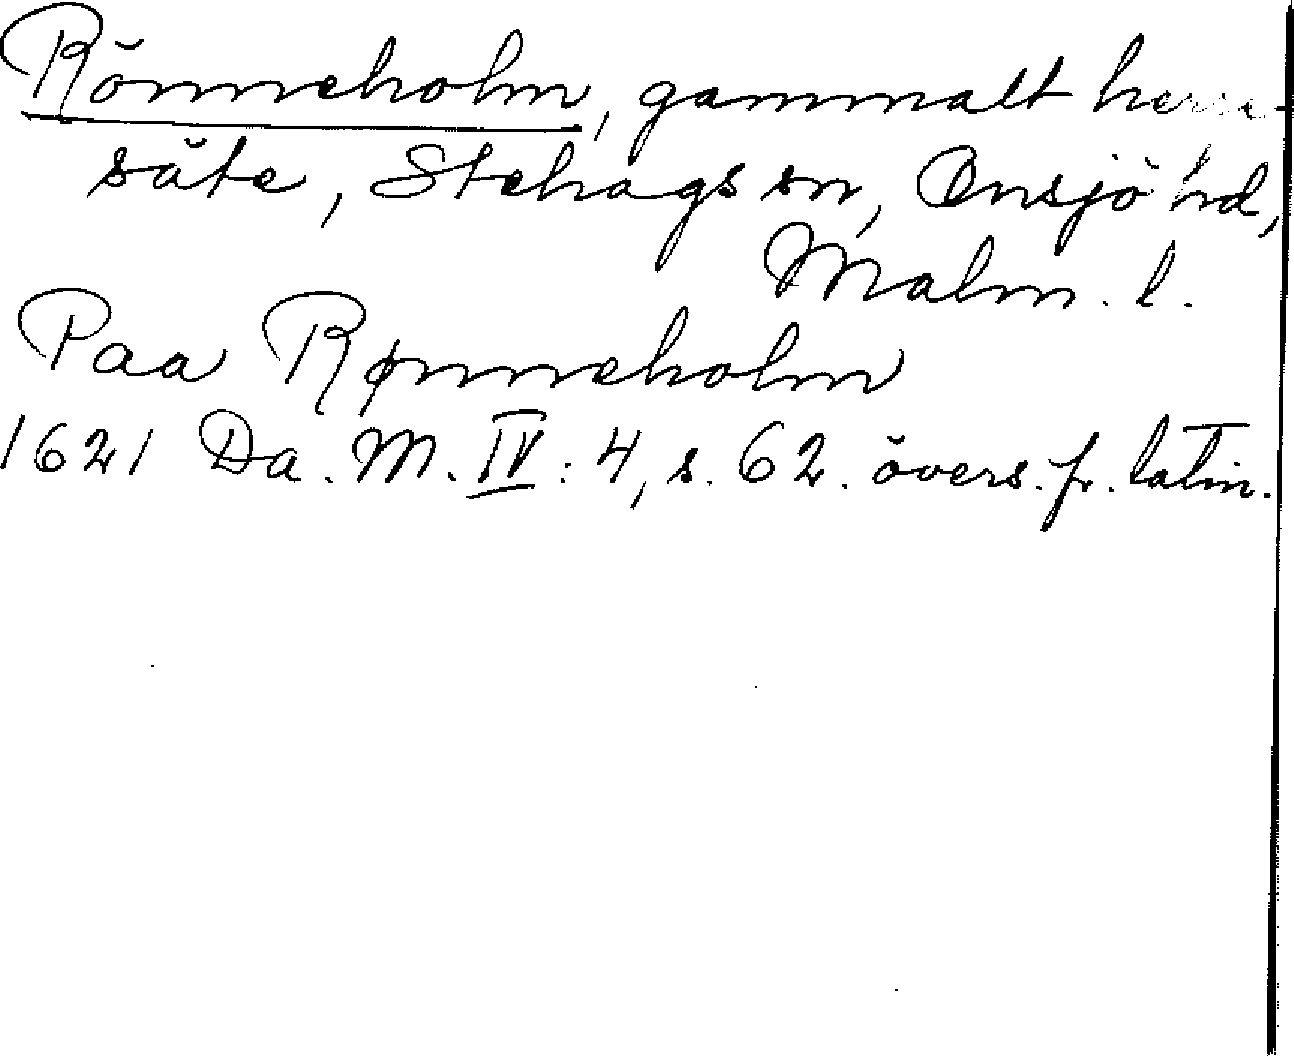 Rönneholm, gammalt herre-
säte, Stehags sn, Onsjö hd,
Malm. l.
Paa Rønneholm
1621 Da. M. IV : 4, s. 62. övers. fr. latin.